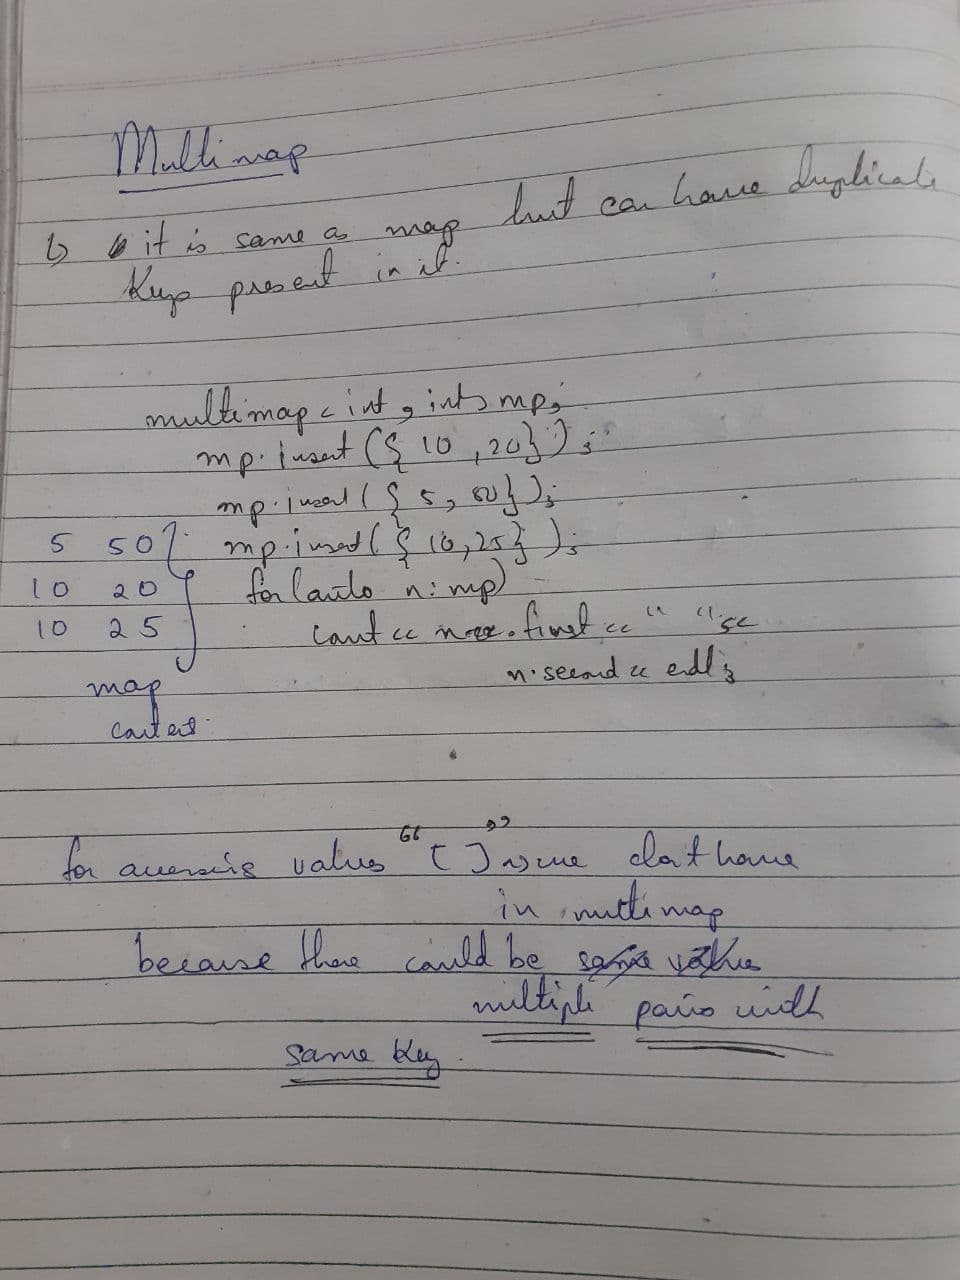 Multimap
↳ it is same as map but can have duplicate
Keys present in it.
multimap < int , int > mp;
mp. insert ({ 10 , 20} );
mp. insert ( { 5, 50} );
5 50 mp. insert ( { 10, 25} );
10 20 for (auto n : mp)
10 25 cout << n . first << " " <<
map n. second << endl;
content
for accessing values "[ ]" we don't have
in multimap
because there could be same values
multiple pairs with
same key.